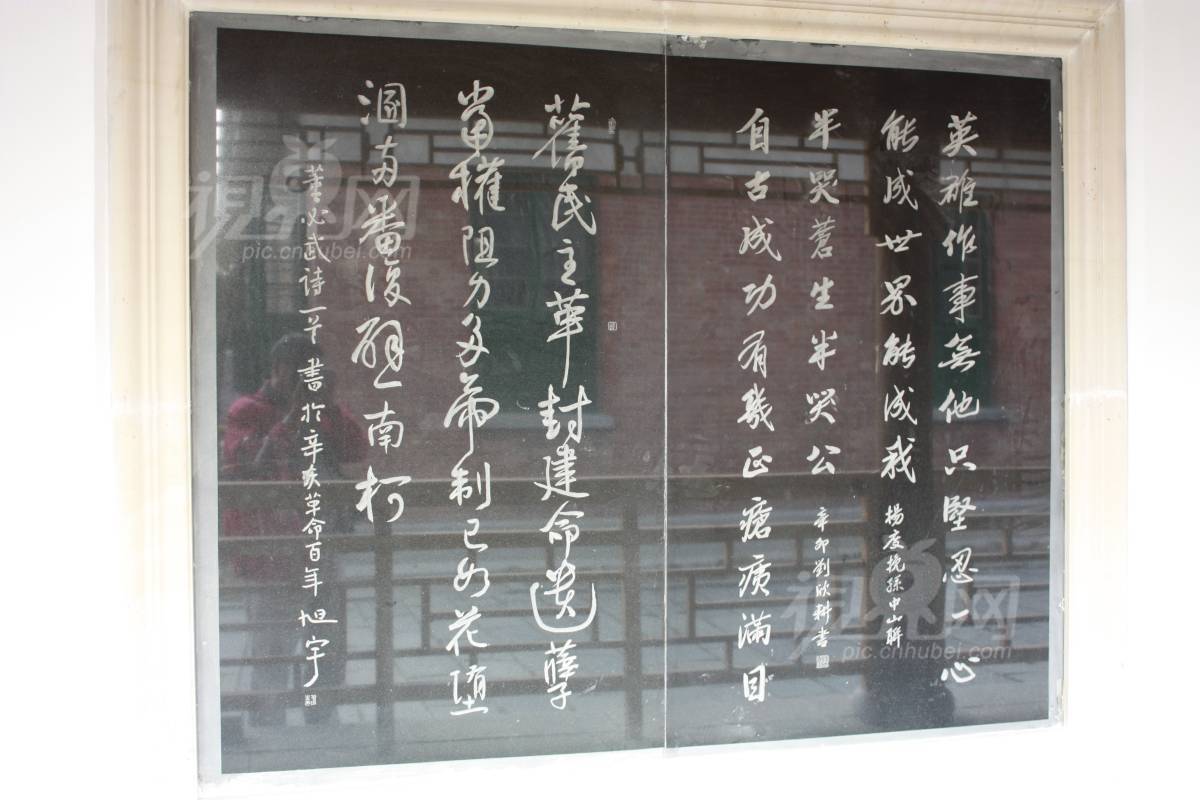 英雄作事無他只堅忍一心
能成世界能成我
楊度挽孫中山聯
自古成功有幾正瘡痍滿目
半哭蒼生半哭公
辛卯劉欣耕書
舊民主革封建命遺孽
當權阻力多帝制已如花墮
溷两番復辟一南柯
董必武詩一首書於辛亥革命百年旭宇
視界网
pic.cnhubei.com
視界网
pic.cnhubei.com